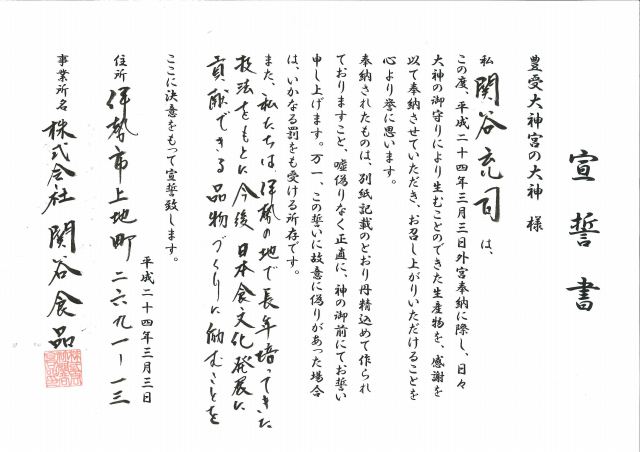 宣誓書
豊受大神宮の大神 様
私 関谷充司 は、
この度、平成二十四年三月三日外宮奉納に際し、日々
大神の御守りにより生むことのできた生産物を、感謝を
以て奉納させていただき、お召し上がりいただけることを
心より誉に思います。
奉納されたものは、別紙記載のとおり丹精込めて作られ
ておりますこと、嘘偽りなく正直に、神の御前にてお誓い
申し上げます。万一、この誓いに故意に偽りがあった場合
は、いかなる罰をも受ける所存です。
また、私たちは伊勢の地で長年培ってきた
技法をもとに今後日本食文化発展に
貢献できる品物づくりに励むことを
ここに決意をもって宣誓致します。
平成二十四年三月三日
住所 伊勢市上地町二六九一ー一三
事業所名 株式会社 関谷食品